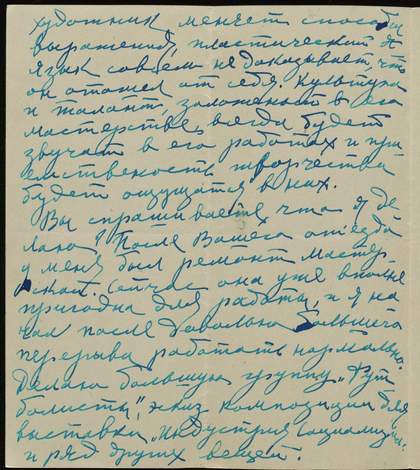 художник меняет способы
выражения, пластический
язык совсем не доказывает, что
он отошел от себя. Культура
и талант, заложенный в его
мастерстве, всегда будет
звучать в его работах и
будет ощущаться в них.
Вы спрашиваете, что я де-
лаю? После Вашего отъезда
у меня был ремонт мастер-
ской. Сейчас она уже вполне
пригодна для работы, и я на-
чал после довольно большого
перерыва работать нормально.
Делаю большую группу "Фут-
болисты", эскиз композиции для
выставки "Индустрия социализма"
и ряд других вещей.